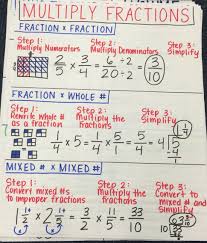 MULTIPLY FRACTIONS
FRACTION x FRACTION
Step 1: Multiply Numerators
Step 2: Multiply Denominators
Step 3: Simplify
2/5 x 3/4 = 6÷2/20÷2 = 3/10
FRACTION x WHOLE #
Step 1: Rewrite whole # as a fraction
Step 2: Multiply the fractions
Step 3: Simplify
1/4 x 5 = 1/4 x 5/1 = 5/4 = 4)5 1 1/4
MIXED # x MIXED #
Step 1: Convert mixed #s to improper fractions
Step 2: Multiply the fractions
Step 3: Convert to mixed # and Simplify
1 1/2 x 2 1/5 = 3/2 x 11/5 = 33/10
10)33